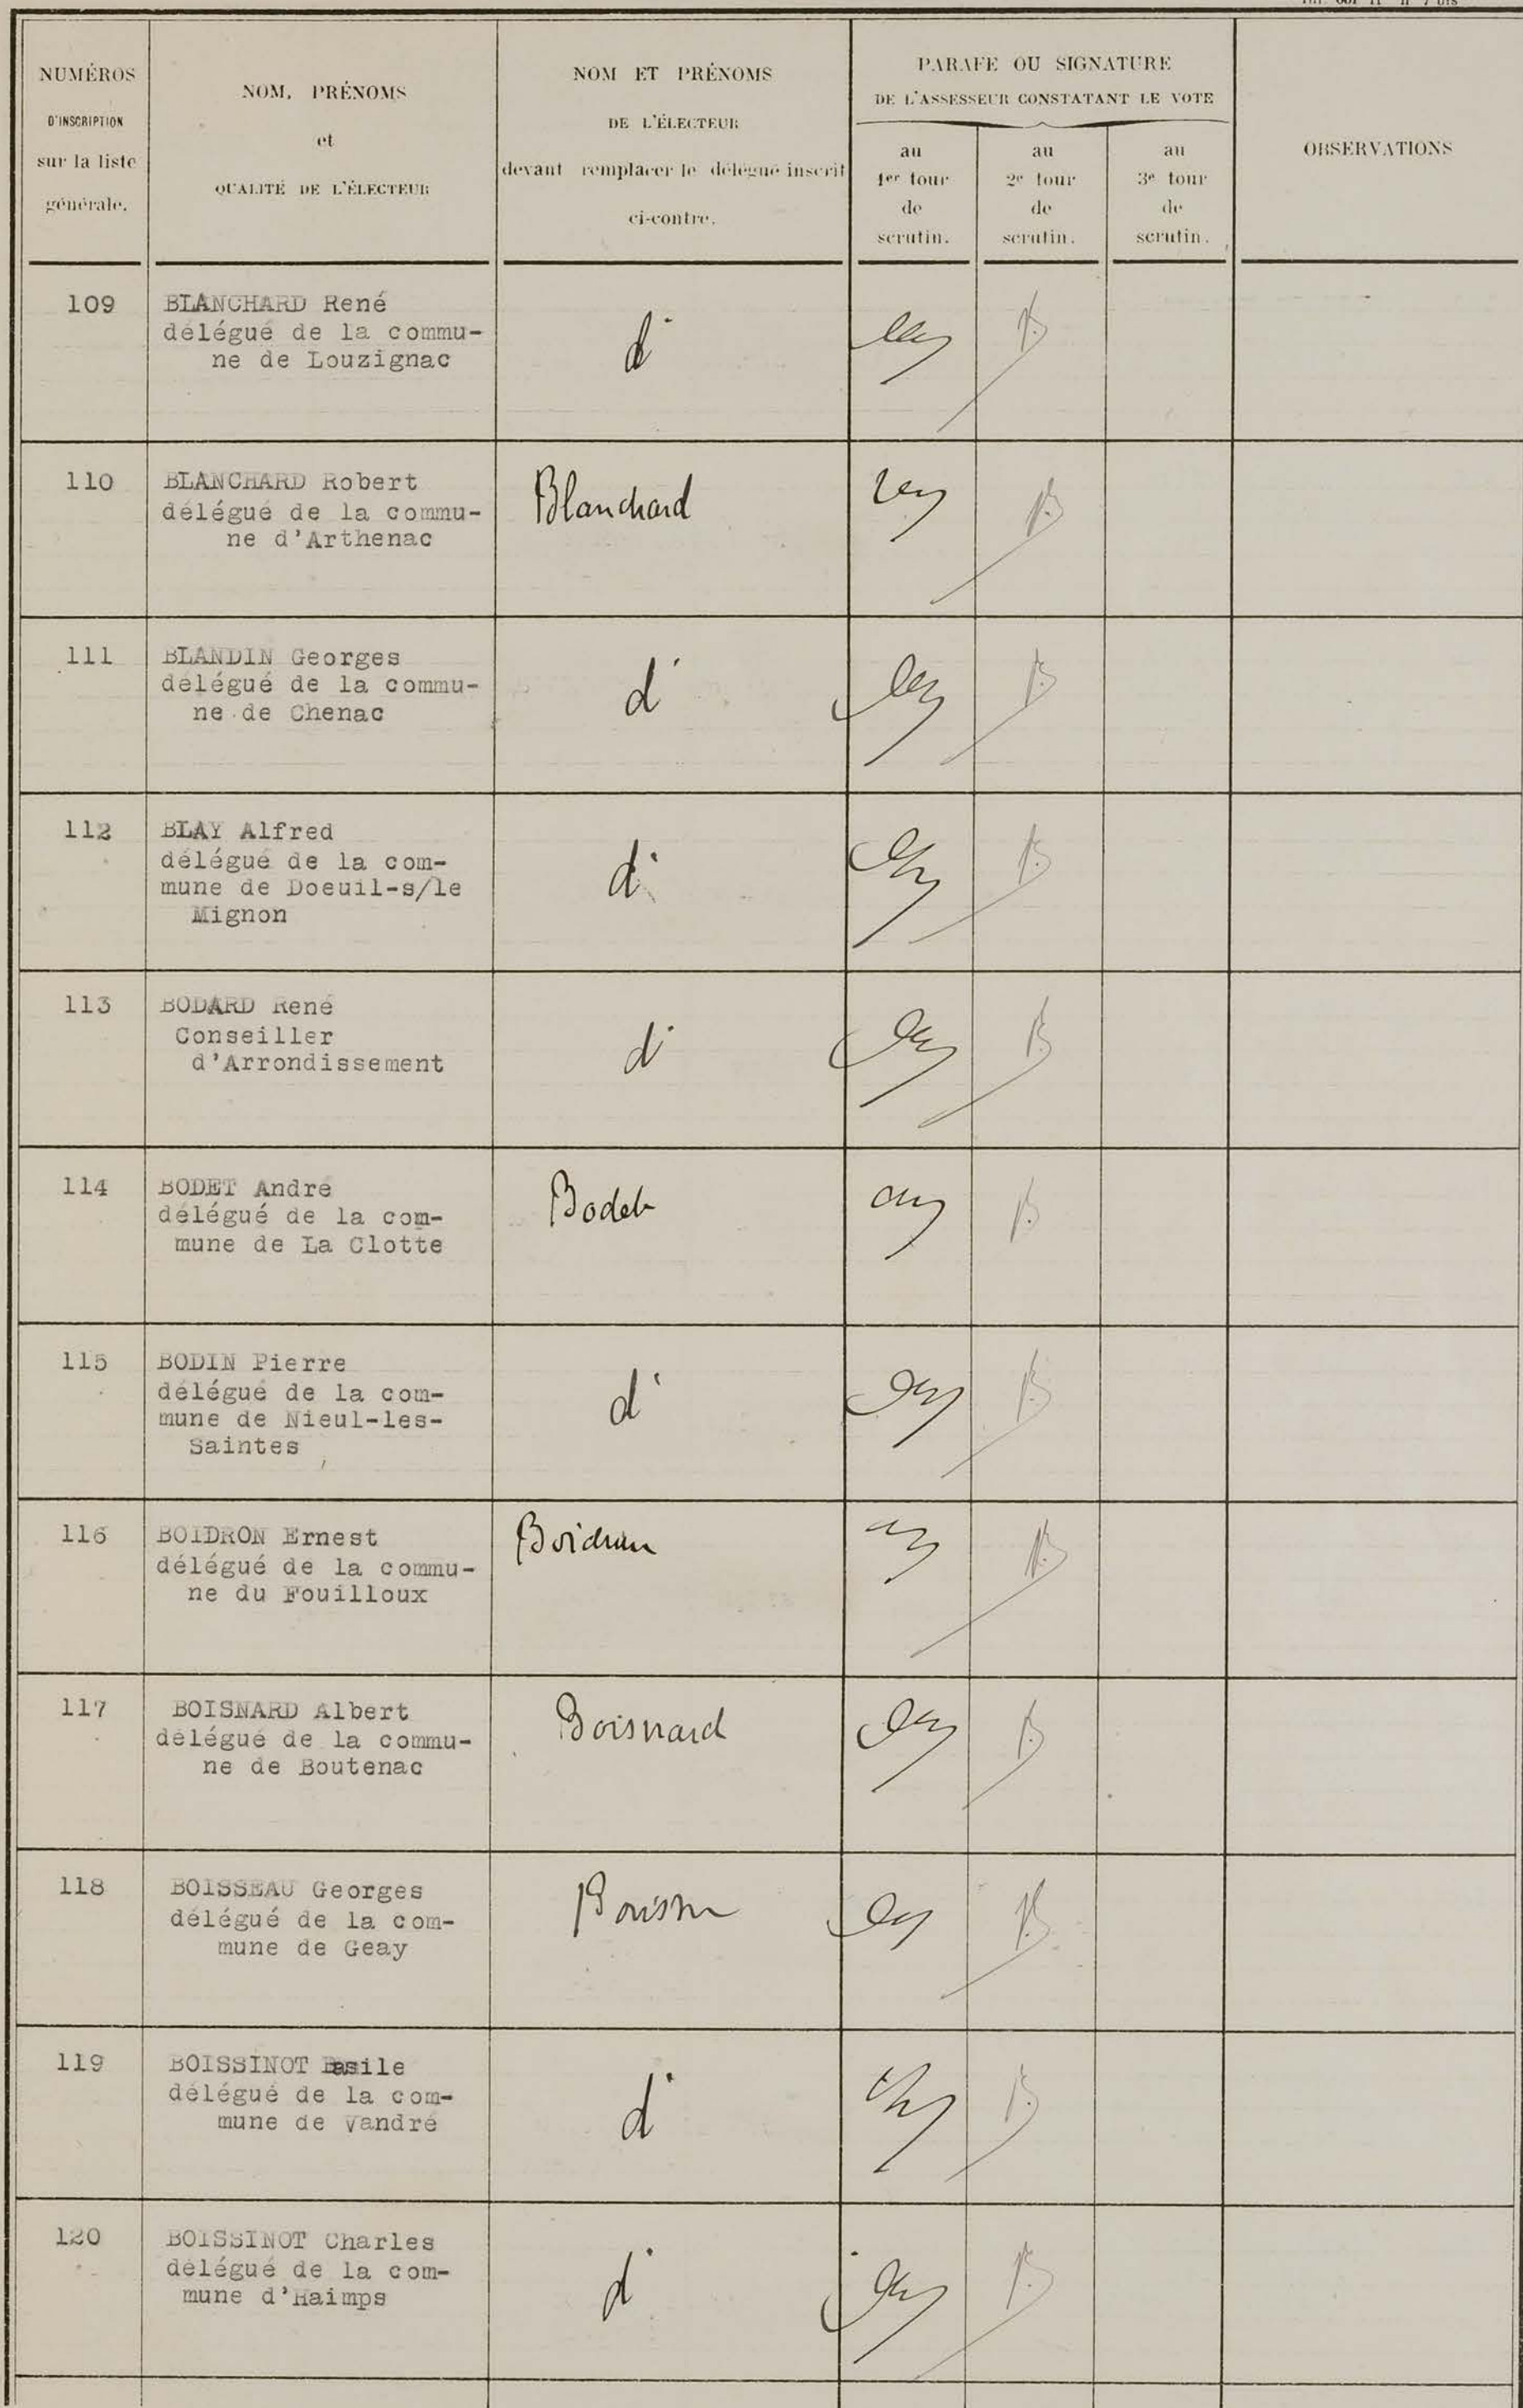 NUMÉROS
D'INSCRIPTION
sur la liste
générale.
NOM, PRÉNOMS
et
QUALITÉ DE L'ÉLECTEUR
NOM ET PRÉNOMS
DE L'ÉLECTEUR
devant remplacer le délégué inscrit
ci-contre.
PARAFE OU SIGNATURE
DE L'ASSESSEUR CONSTATANT LE VOTE
au
1er tour
de
scrutin.
au
2e tour
de
scrutin.
au
3e tour
de
scrutin.
OBSERVATIONS
109
BLANCHARD René
délégué de la commu-
ne de Louzignac
d°
110
BLANCHARD Robert
délégué de la commu-
ne d'Arthenac
Blanchard
111
BLANDIN Georges
délégué de la commu-
ne de Chenac
d°
112
BLAY Alfred
délégué de la com-
mune de Doeuil-s/le
Mignon
d°
113
BODARD René
Conseiller
d'Arrondissement
d°
114
BODET André
délégué de la com-
mune de La Clotte
Bodet
115
BODIN Pierre
délégué de la com-
mune de Nieul-les-
Saintes
d°
116
BOIDRON Ernest
délégué de la commu-
ne du Fouilloux
Boidron
117
BOISNARD Albert
délégué de la commu-
ne de Boutenac
Boisnard
118
BOISSEAU Georges
délégué de la com-
mune de Geay
119
BOISSINOT Basile
délégué de la com-
mune de Vandré
d°
120
BOISSINOT Charles
délégué de la com-
mune d'Haimps
d°